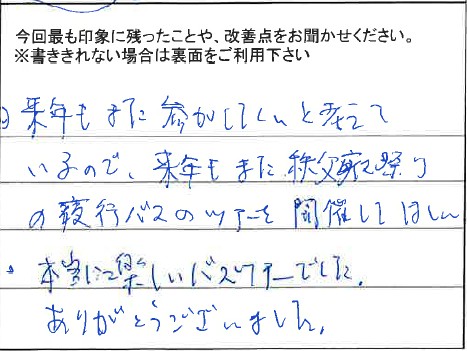 今回最も印象に残ったことや、改善点をお聞かせください。
※書ききれない場合は裏面をご利用下さい
来年もまた参加してくんと考えて
いるので、来年もまた秩父夜祭り
の夜行バスのツアーを開催してほしい
・本当に楽しいバスツアーでした。
ありがとうございました。